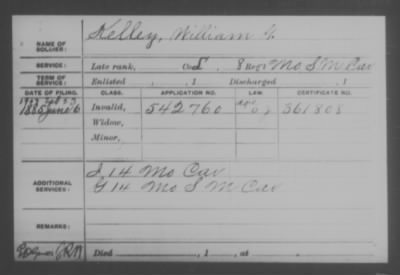 NAME OF SOLDIER: Kelley, William
SERVICE: Late rank, Co. 8 Reg't Mo S M Cav
TERM OF SERVICE: Enlisted , 1 Discharged , 1
DATE OF FILING. CLASS. APPLICATION NO. LAW. CERTIFICATE NO.
1885 June 6 Invalid, 542760 361808
Widow,
Minor,
ADDITIONAL SERVICES: 14 Mo Cav
G 14 Mo S M Cav
REMARKS:
Died , 1 , at